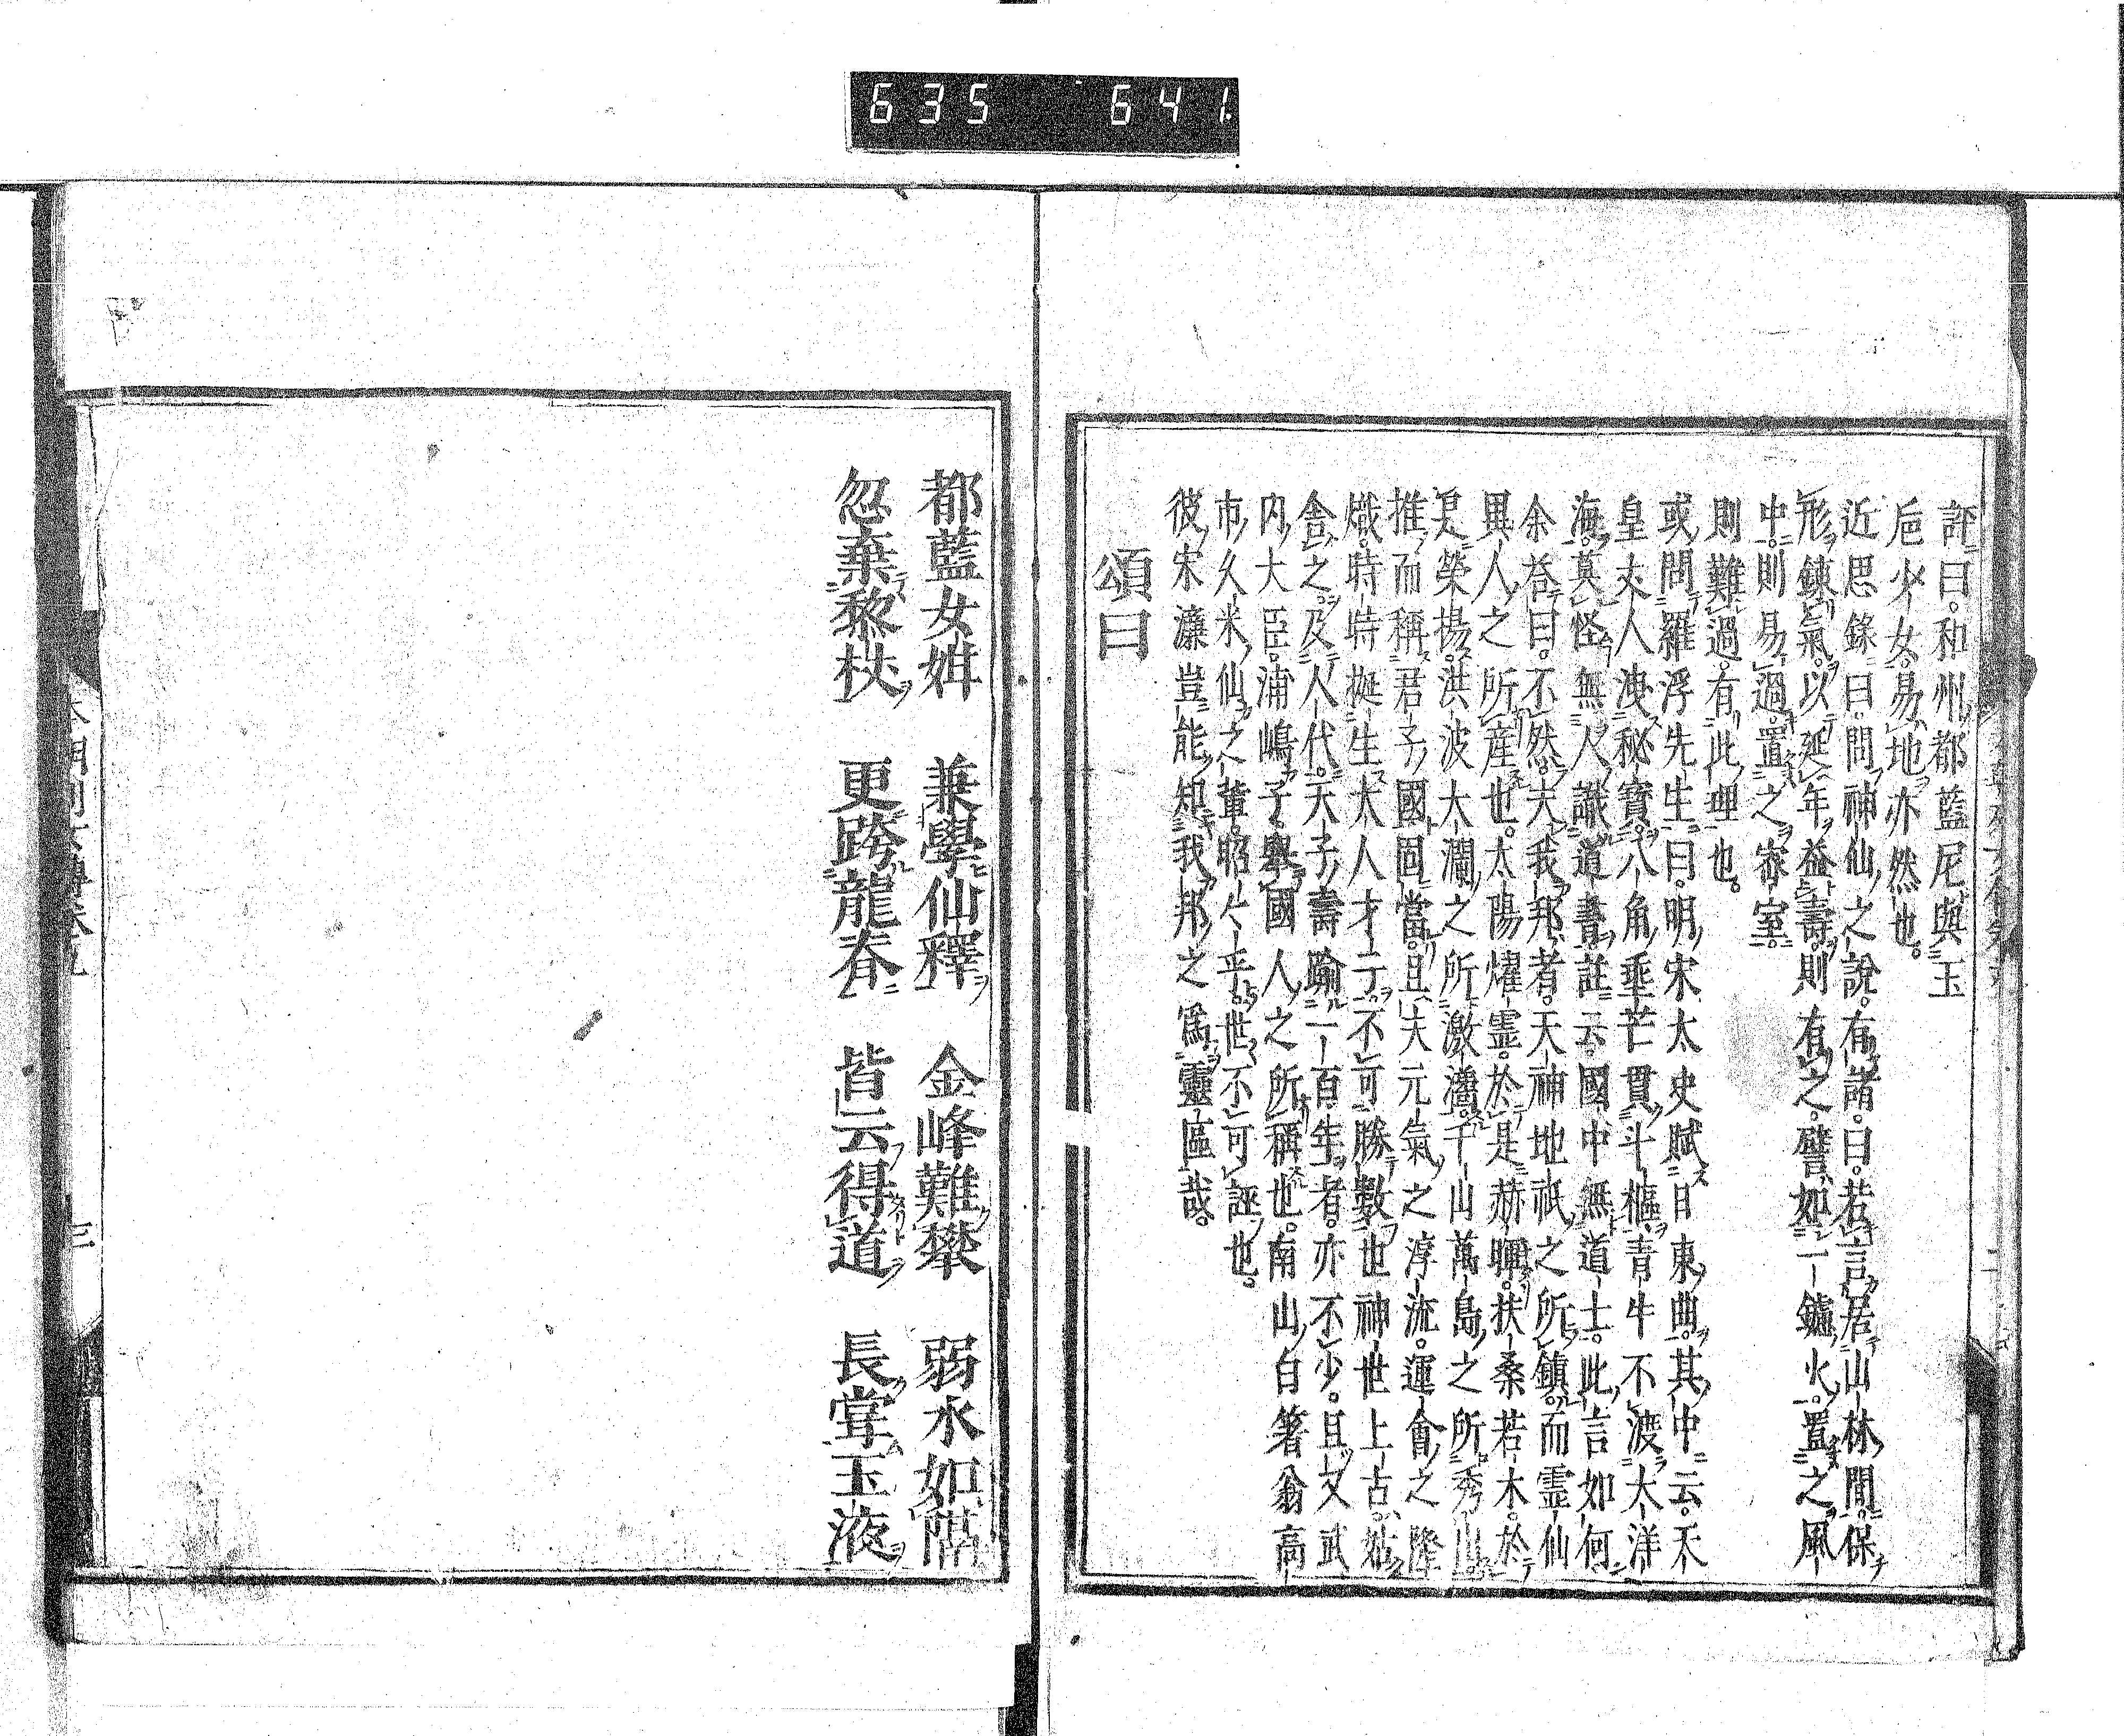 635 641
評曰。和州都藍尼與玉
巵少女。易地亦然也。
近思錄曰。問神仙之說。有諸。曰。若言居山林間。保
形鍊氣。以延年益壽。則有之。譬如一鑪火。置之風
中則易過。置之密室。
則難過。有此理也。
或問羅浮先生曰。明宋太史賦日東曲。其中云。天
皇夫人洩秘寶。八角垂芒貫斗樞。青牛不渡大洋
海。莫怪無人識道書。註云。國中無道士。此言如何
余荅曰。不然。夫我邦者。天神地祇之所鎮。而霊仙
異人之所産也。太陽燿霊。於是赫暉。扶桑若木。於
是榮揚。洪波大瀾之所激灑。千山萬島之所秀出。
推而稱君子國固當。且夫元氣之淳流。運會之隆
熾。時時挺生大人才子。不可勝數。世神世上古。姑
舎之。及人代。天子壽踰一百年者。亦不少。且又武
内大臣。浦嶋子。舉國人之所稱也。南山白箸翁高
市久米仙之輩。昭昭乎世。不可誣也。
彼宋濂豈能知我邦之爲靈區哉。
頌曰
都藍女媎 兼學仙釋 金峰難攀 弱水如隔
忽棄黎杖 更跨龍春 皆云得道 長掌玉液
本朝列仙傳卷五
三